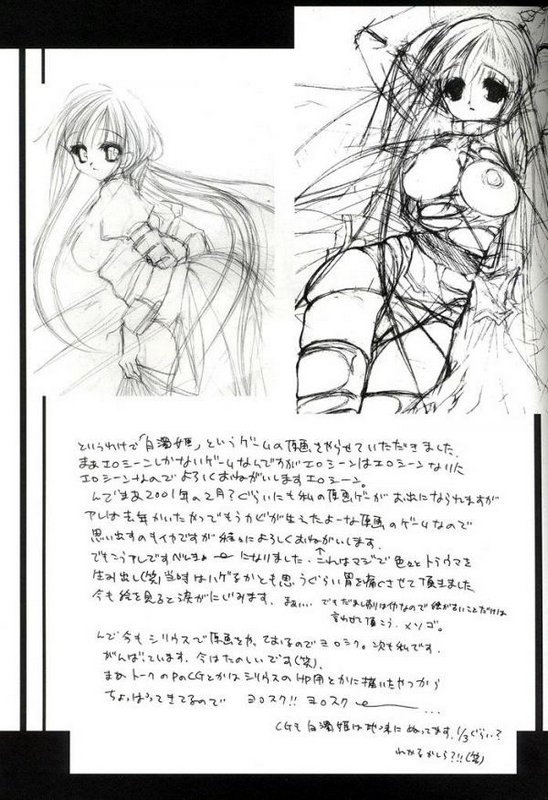 というわけで「白濁姫」というゲームの原画をやらせていただきました。
まぁエロシーンしかないゲームなんですがエロシーンはエロシーンなりに
エロシーンなのでよろしくおねがいしますエロシーン。
んでまあ2001年の2月ぐらいにも私の原画ゲーがお出になられますが
アレは去年かいたかってもうカビが生えたよーな原画のゲームなので
思い出すのもイカですが終りによろしくおねがいします。
でもこうアレです になりました。これはマジで色々とトラウマを
生み出し(笑)当時はハゲるかとも思うぐらい胃を痛くさせて頂きました
今も絵を見ると涙がにじみます。まぁ… でも なので ことだけは
言わせて頂こう。メソゴ。
んで今もシリウスで原画をやっておるのでヨロシク。次も私です。
がんばっています。今はたのしいです(笑)。
まあトークのPのCGとかはシリウスのHP用とかに描いたやつから
ちょっぱってきてるので ヨロスク!! ヨロスク …
CGも白濁姫は地味にぬってます。1/3ぐらい?
わかるかしら?!!(笑)